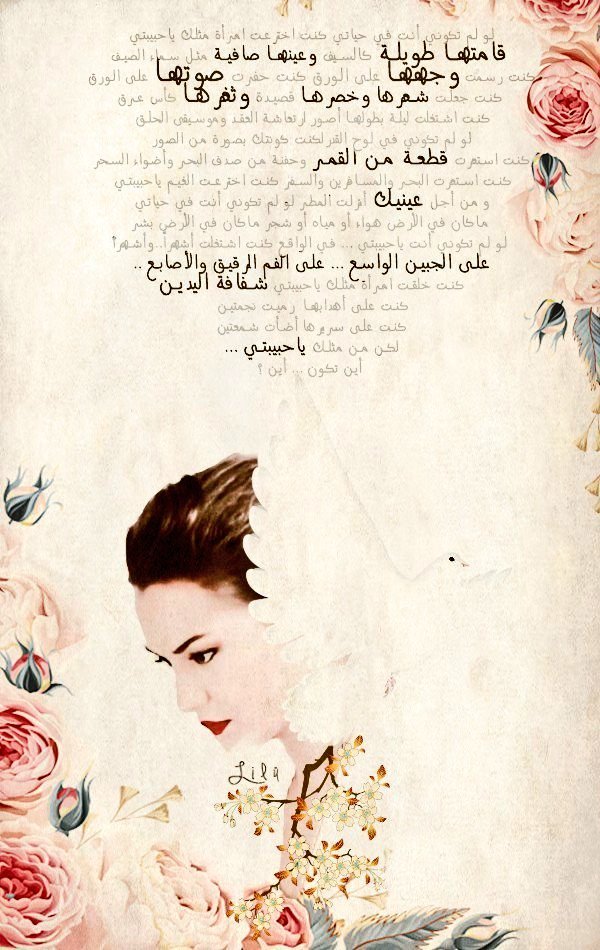 لو لم تكوني أنت في حياتي كنت اخترعت امرأة مثلك ياحبيبتي
قامتها طويلة كالسيف وعينها صافية مثل سماء الصيف
كنت رسمت وجهها على الورق كنت حفرت صوتها على الورق
كنت جعلت شعرها وخصرها قصيدة وثغرها كأس عرق
كنت اشتغلت ليلة بطولها أصور ارتعاشة العقد وموسيقى الحلق
لو لم تكوني في لوح القدر لكنت كونتك بصورة من الصور
كنت استعرت قطعة من القمر وحفنة من صدف البحر وأضواء السحر
كنت استعرت البحر والمسافرين والسفر كنت اخترعت الغيم ياحبيبتي
و من أجل عينيك أنزلت المطر لو لم تكوني أنت في حياتي
ماكان في الأرض هواء أو مياه أو شجر ماكان في الأرض بشر
لو لم تكوني أنت ياحبيبتي ... في الواقع كنت اشتغلت أشهراً..وأشهراً
على الجبين الواسع ... على الفم الرقيق والأصابع ..
كنت خلقت امرأة مثلك ياحبيبتي شفافة اليدين
كنت على أهدابها رميت نجمتين
كنت على سريرها أضأت شمعتين
لكن من مثلك ياحبيبتي ...
أين تكون ... أين ؟
Lila